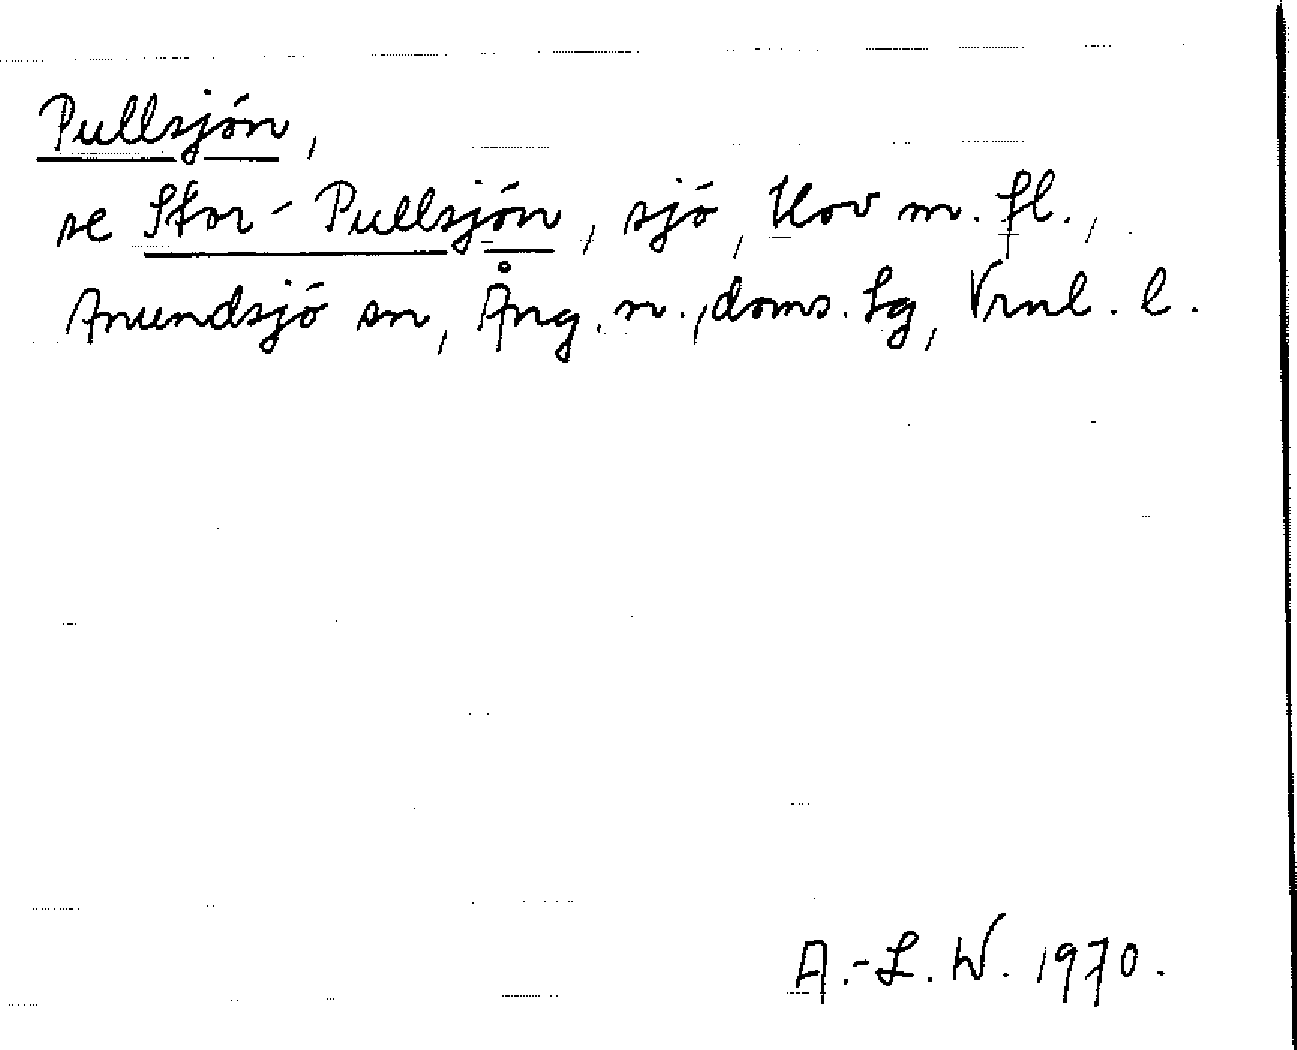 Pullsjön,
se Stor-Pullsjön, sjö, Kov m. fl.,
Anundsjö sn, Ång. n., doms. lg, Vrnl. l.
A.-L. W. 1970.